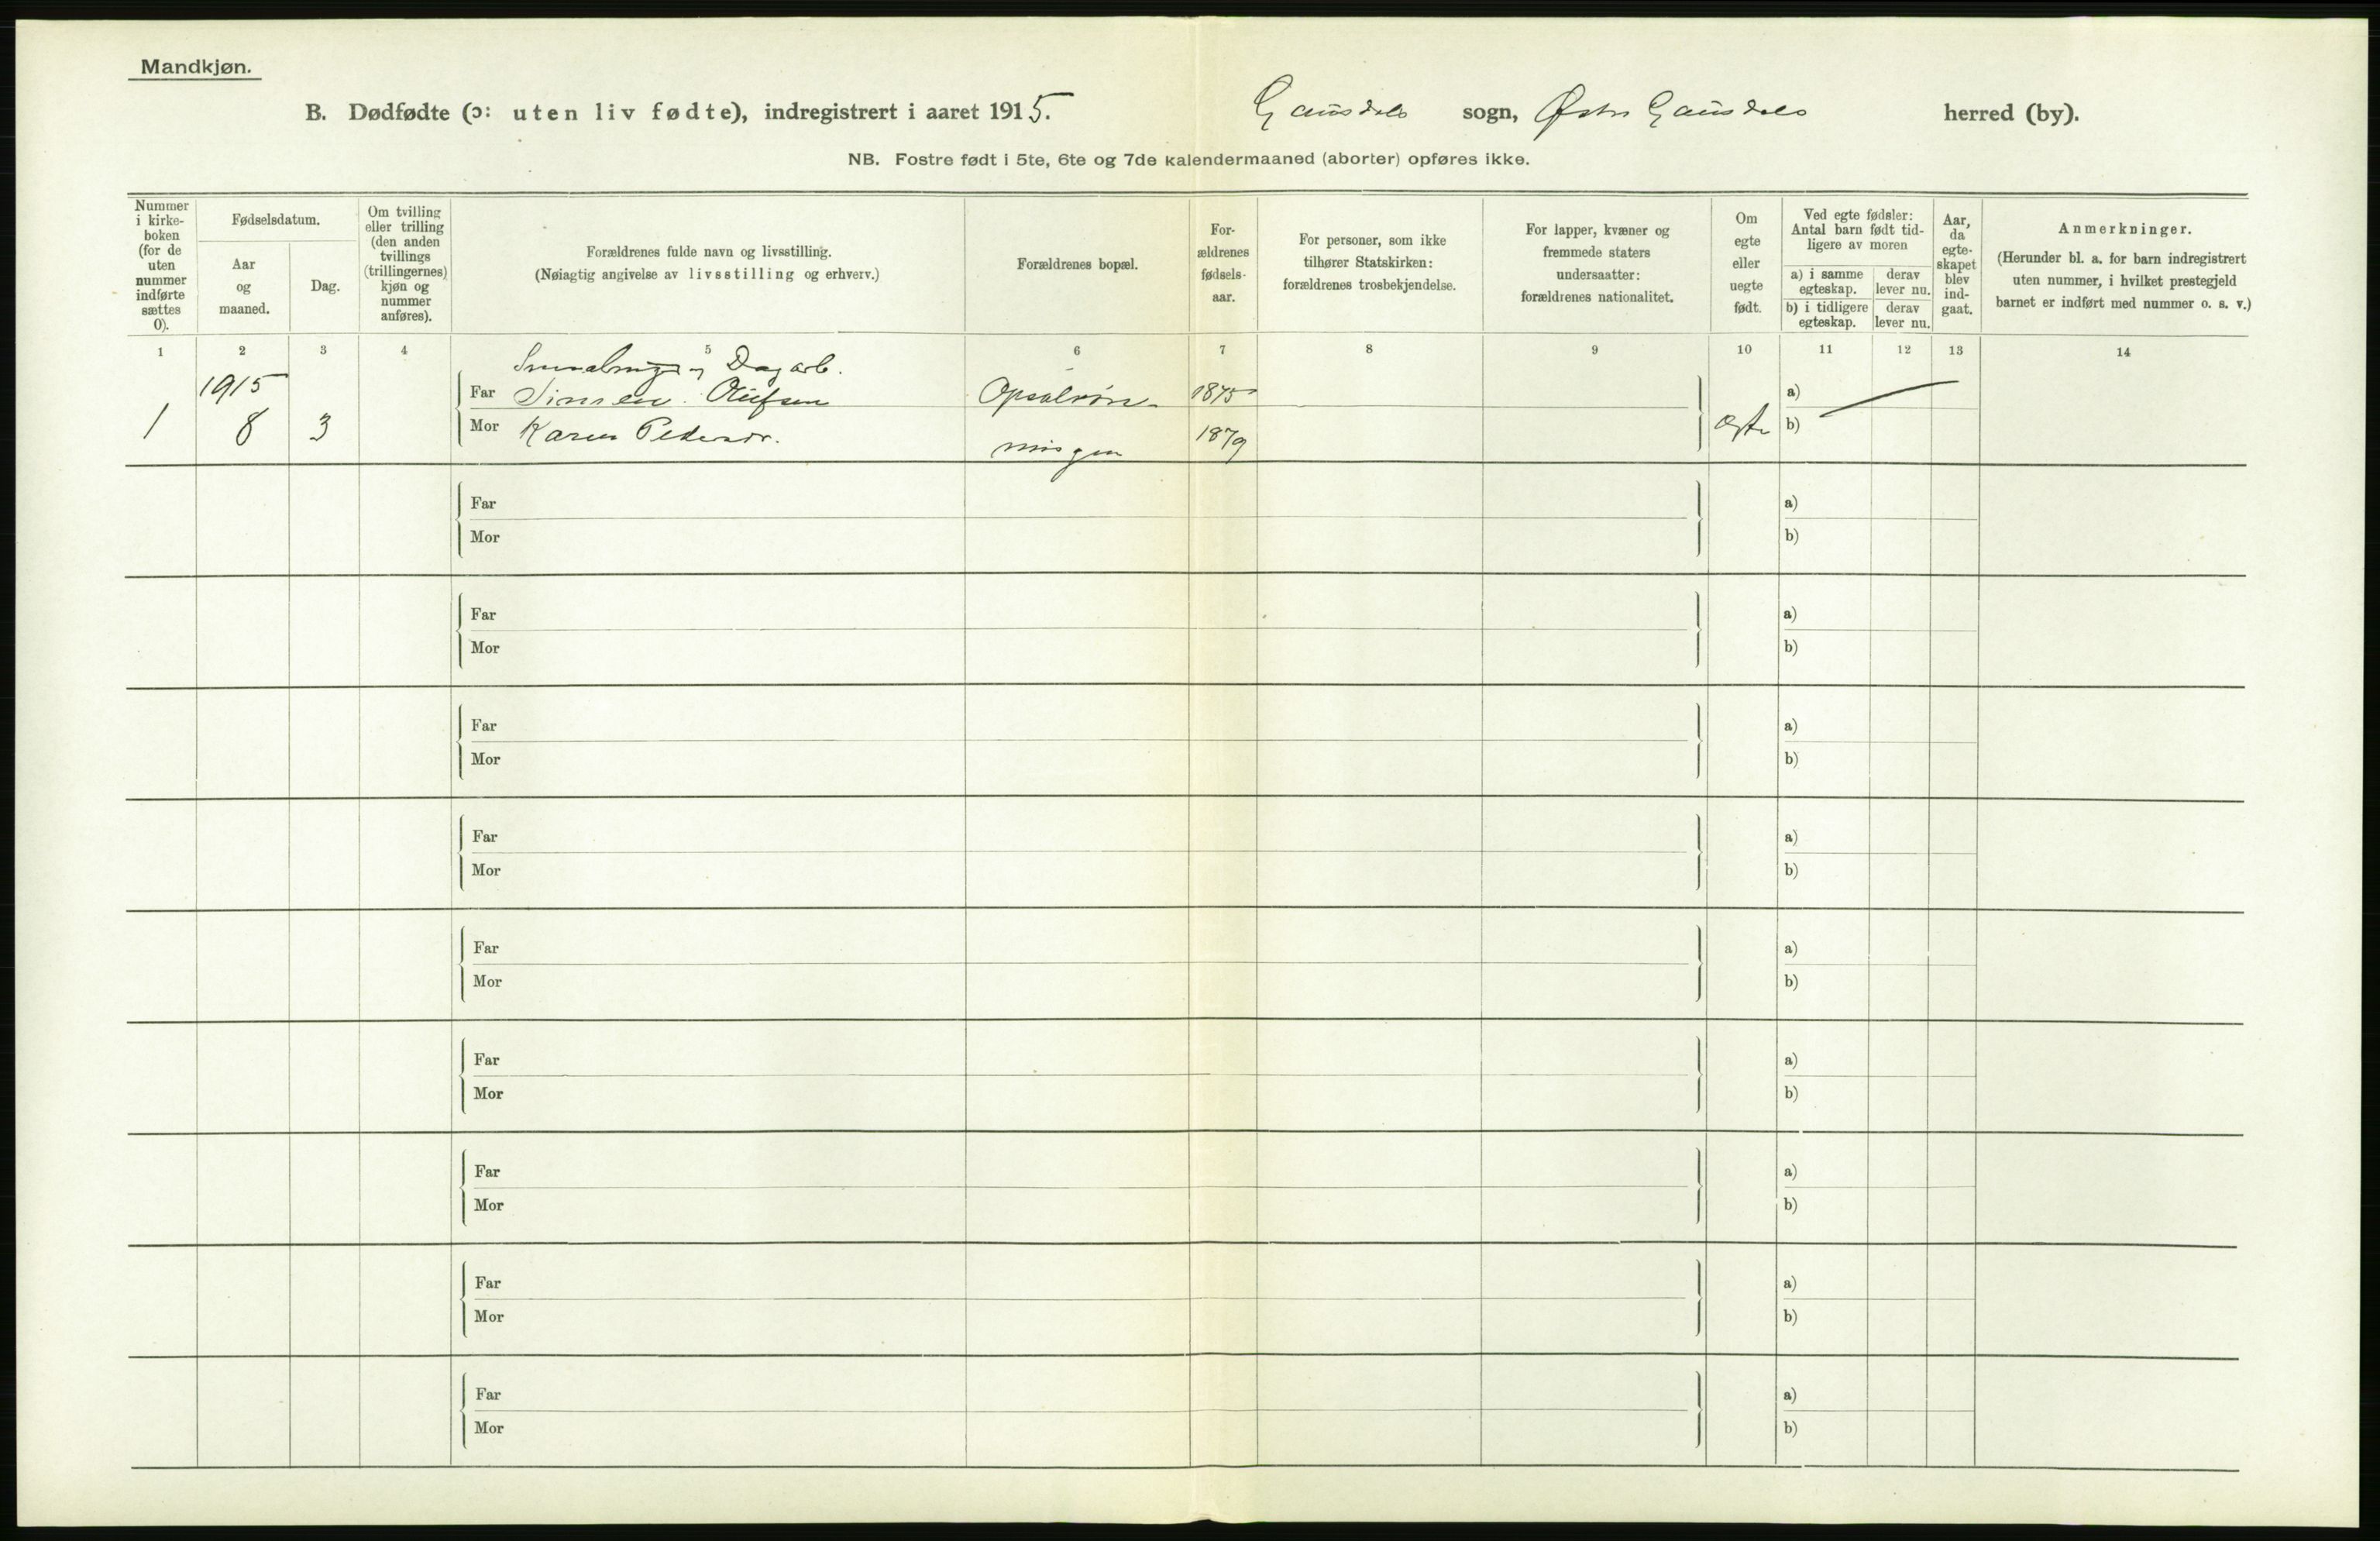 Mandkjøn.
B. Dødfødte (ɔ: uten liv fødte), indregistrert i aaret 1915. Gausdals sogn, Østre Gausdals herred (by).
NB. Fostre født i 5te, 6te og 7de kalendermaaned (aborter) opføres ikke.
Nummer
i kirke-
boken
(for de
uten
nummer
indførte
sættes
0).
Fødselsdatum.
Aar
og
maaned.
Dag.
Om tvilling
eller trilling
(den anden
tvillings
(trillingernes)
kjøn og
nummer
anføres).
Forældrenes fulde navn og livsstilling.
(Nøiagtig angivelse av livsstilling og erhverv.)
Forældrenes bopæl.
For-
ældrenes
fødsels-
aar.
For personer, som ikke
tilhører Statskirken:
forældrenes trosbekjendelse.
For lapper, kvæner og
fremmede staters
undersaatter:
forældrenes nationalitet.
Om
egte
eller
uegte
født.
Ved egte fødsler:
Antal barn født tid-
ligere av moren
a) i samme
egteskap.
derav
lever nu.
b) i tidligere
egteskap.
derav
lever nu.
Aar,
da
egte-
skapet
blev
ind-
gaat.
Anmerkninger.
(Herunder bl. a. for barn indregistrert
uten nummer, i hvilket prestegjeld
barnet er indført med nummer o. s. v.)
1 2 3 4 5 6 7 8 9 10 11 12 13 14
Dagarb.
1915 Far Simen Olufsen 1875 a)
1 8 3 Mor Karen Pedersdr. 1879 egte b)
Far a)
Mor b)
Far a)
Mor b)
Far a)
Mor b)
Far a)
Mor b)
Far a)
Mor b)
Far a)
Mor b)
Far a)
Mor b)
Far a)
Mor b)
Far a)
Mor b)